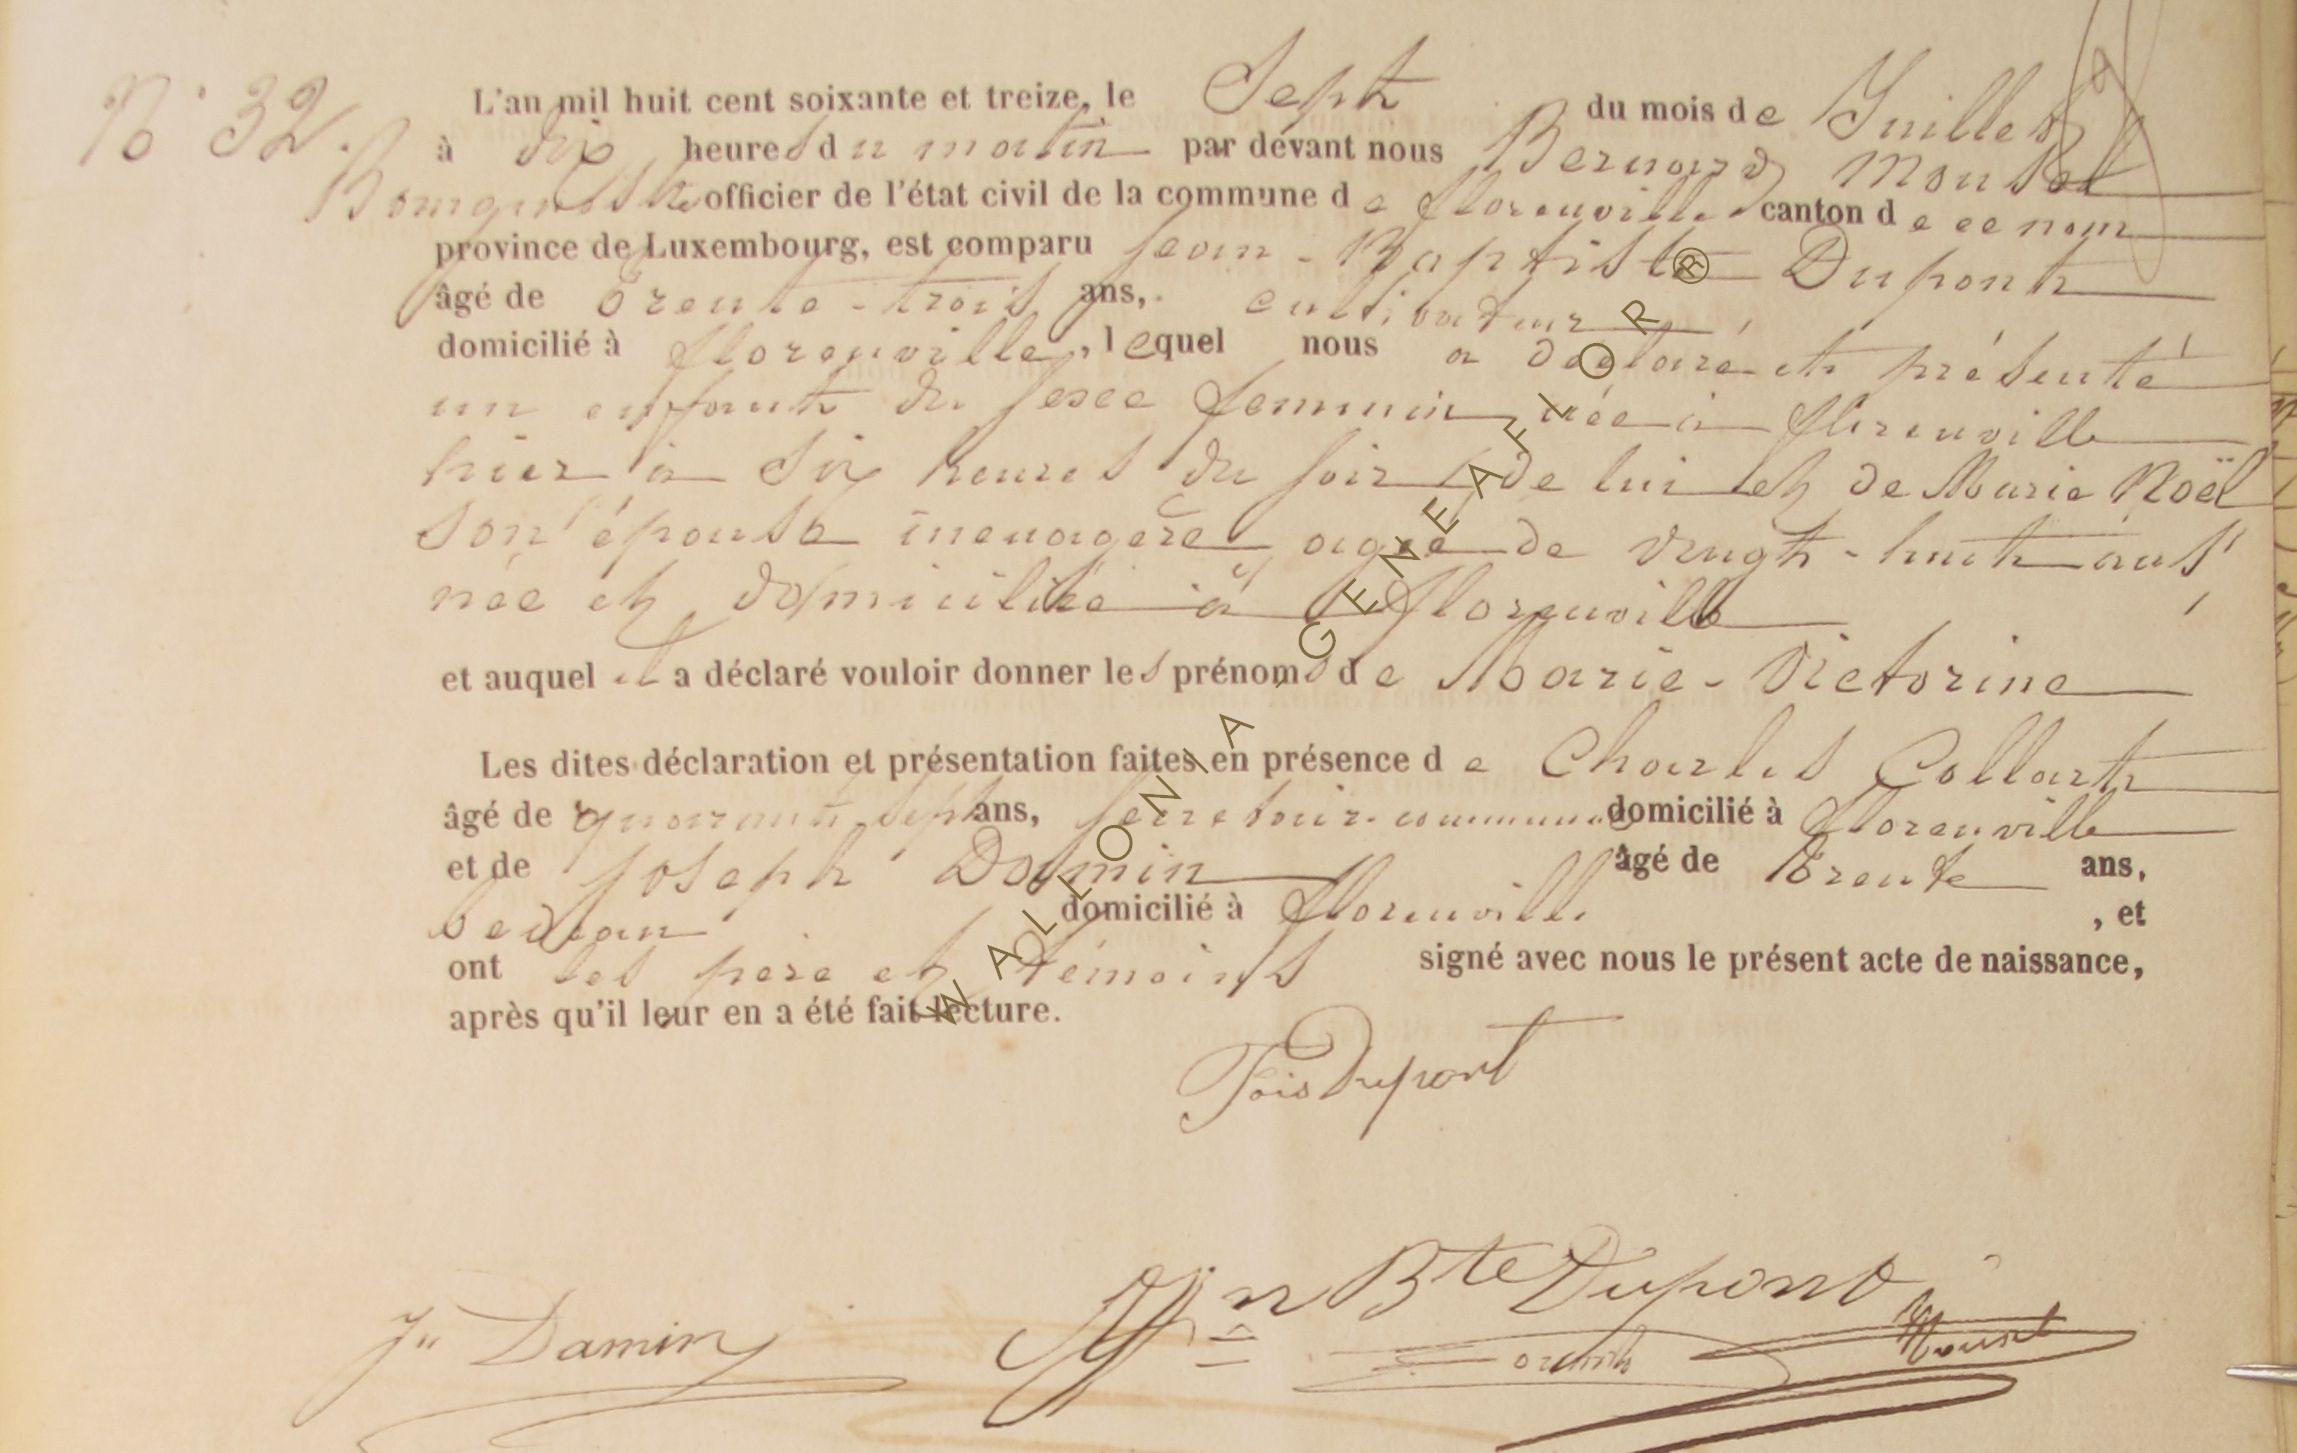 N° 32.
L'an mil huit cent soixante et treize, le Sept du mois de Juillet
à dix heures du matin par dévant nous Bernard Mousel
Bourgmestre officier de l'état civil de la commune de florenville canton de ce nom
province de Luxembourg, est comparu Jean-Baptiste Dupont
âgé de trente-trois ans, cultivateur,
domicilié à florenville, lequel nous a déclaré et présenté
un enfant du sexe feminin née à florenville
hier à six heures du soir, de lui et de Marie Noël
son épouse menagère, agée de vingt-huit ans,
née et domiciliée à florenville,
et auquel il a déclaré vouloir donner les prénoms de Marie-Victorine
Les dites déclaration et présentation faites en présence de Charles Collart
âgé de quarante sept ans, secretaire communal domicilié à florenville
et de Joseph Damin âgé de trente ans,
domicilié à florenville, et
ont les père et témoins signé avec nous le présent acte de naissance,
après qu'il leur en a été fait lecture.
WALLONIA, GENEAFLOR ®
Dupont
Jh Damin
Jn Bte Dupont